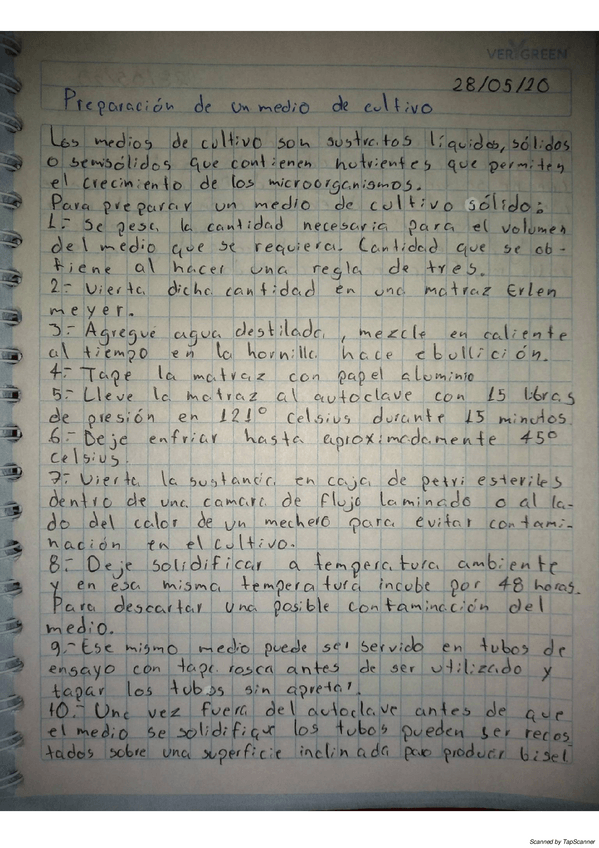 VERYGREEN
28/05/20
Preparación de un medio de cultivo
Los medios de cultivo son sustratos líquidos, sólidos
o semisólidos que contienen nutrientes que permiten
el crecimiento de los microorganismos.
Para preparar un medio de cultivo sólido:
1.- Se pesa la cantidad necesaria para el volumen
del medio que se requiera. Cantidad que se ob-
tiene al hacer una regla de tres.
2.- Vierta dicha cantidad en una matraz Erlen
meyer.
3.- Agregue agua destilada, mezcle en caliente
al tiempo en la hornilla hace ebullición.
4.- Tape la matraz con papel aluminio
5.- Lleve la matraz al autoclave con 15 libras
de presión en 121° Celsius durante 15 minutos.
6.- Deje enfriar hasta aproximadamente 45°
Celsius.
7.- Vierta la sustancia en caja de petri esteriles
dentro de una camara de flujo laminado o al la-
do del calor de un mechero para evitar contami-
nación en el cultivo.
8.- Deje solidificar a temperatura ambiente
y en esa misma temperatura incube por 48 horas.
Para descartar una posible contaminación del
medio.
9.- Ese mismo medio puede ser servido en tubos de
ensayo con tapa rosca antes de ser utilizado y
tapar los tubos sin apretar.
10.- Una vez fuera del autoclave antes de que
el medio se solidifique los tubos pueden ser recos
tados sobre una superficie inclinada para producir bisel
Scanned by TapScanner